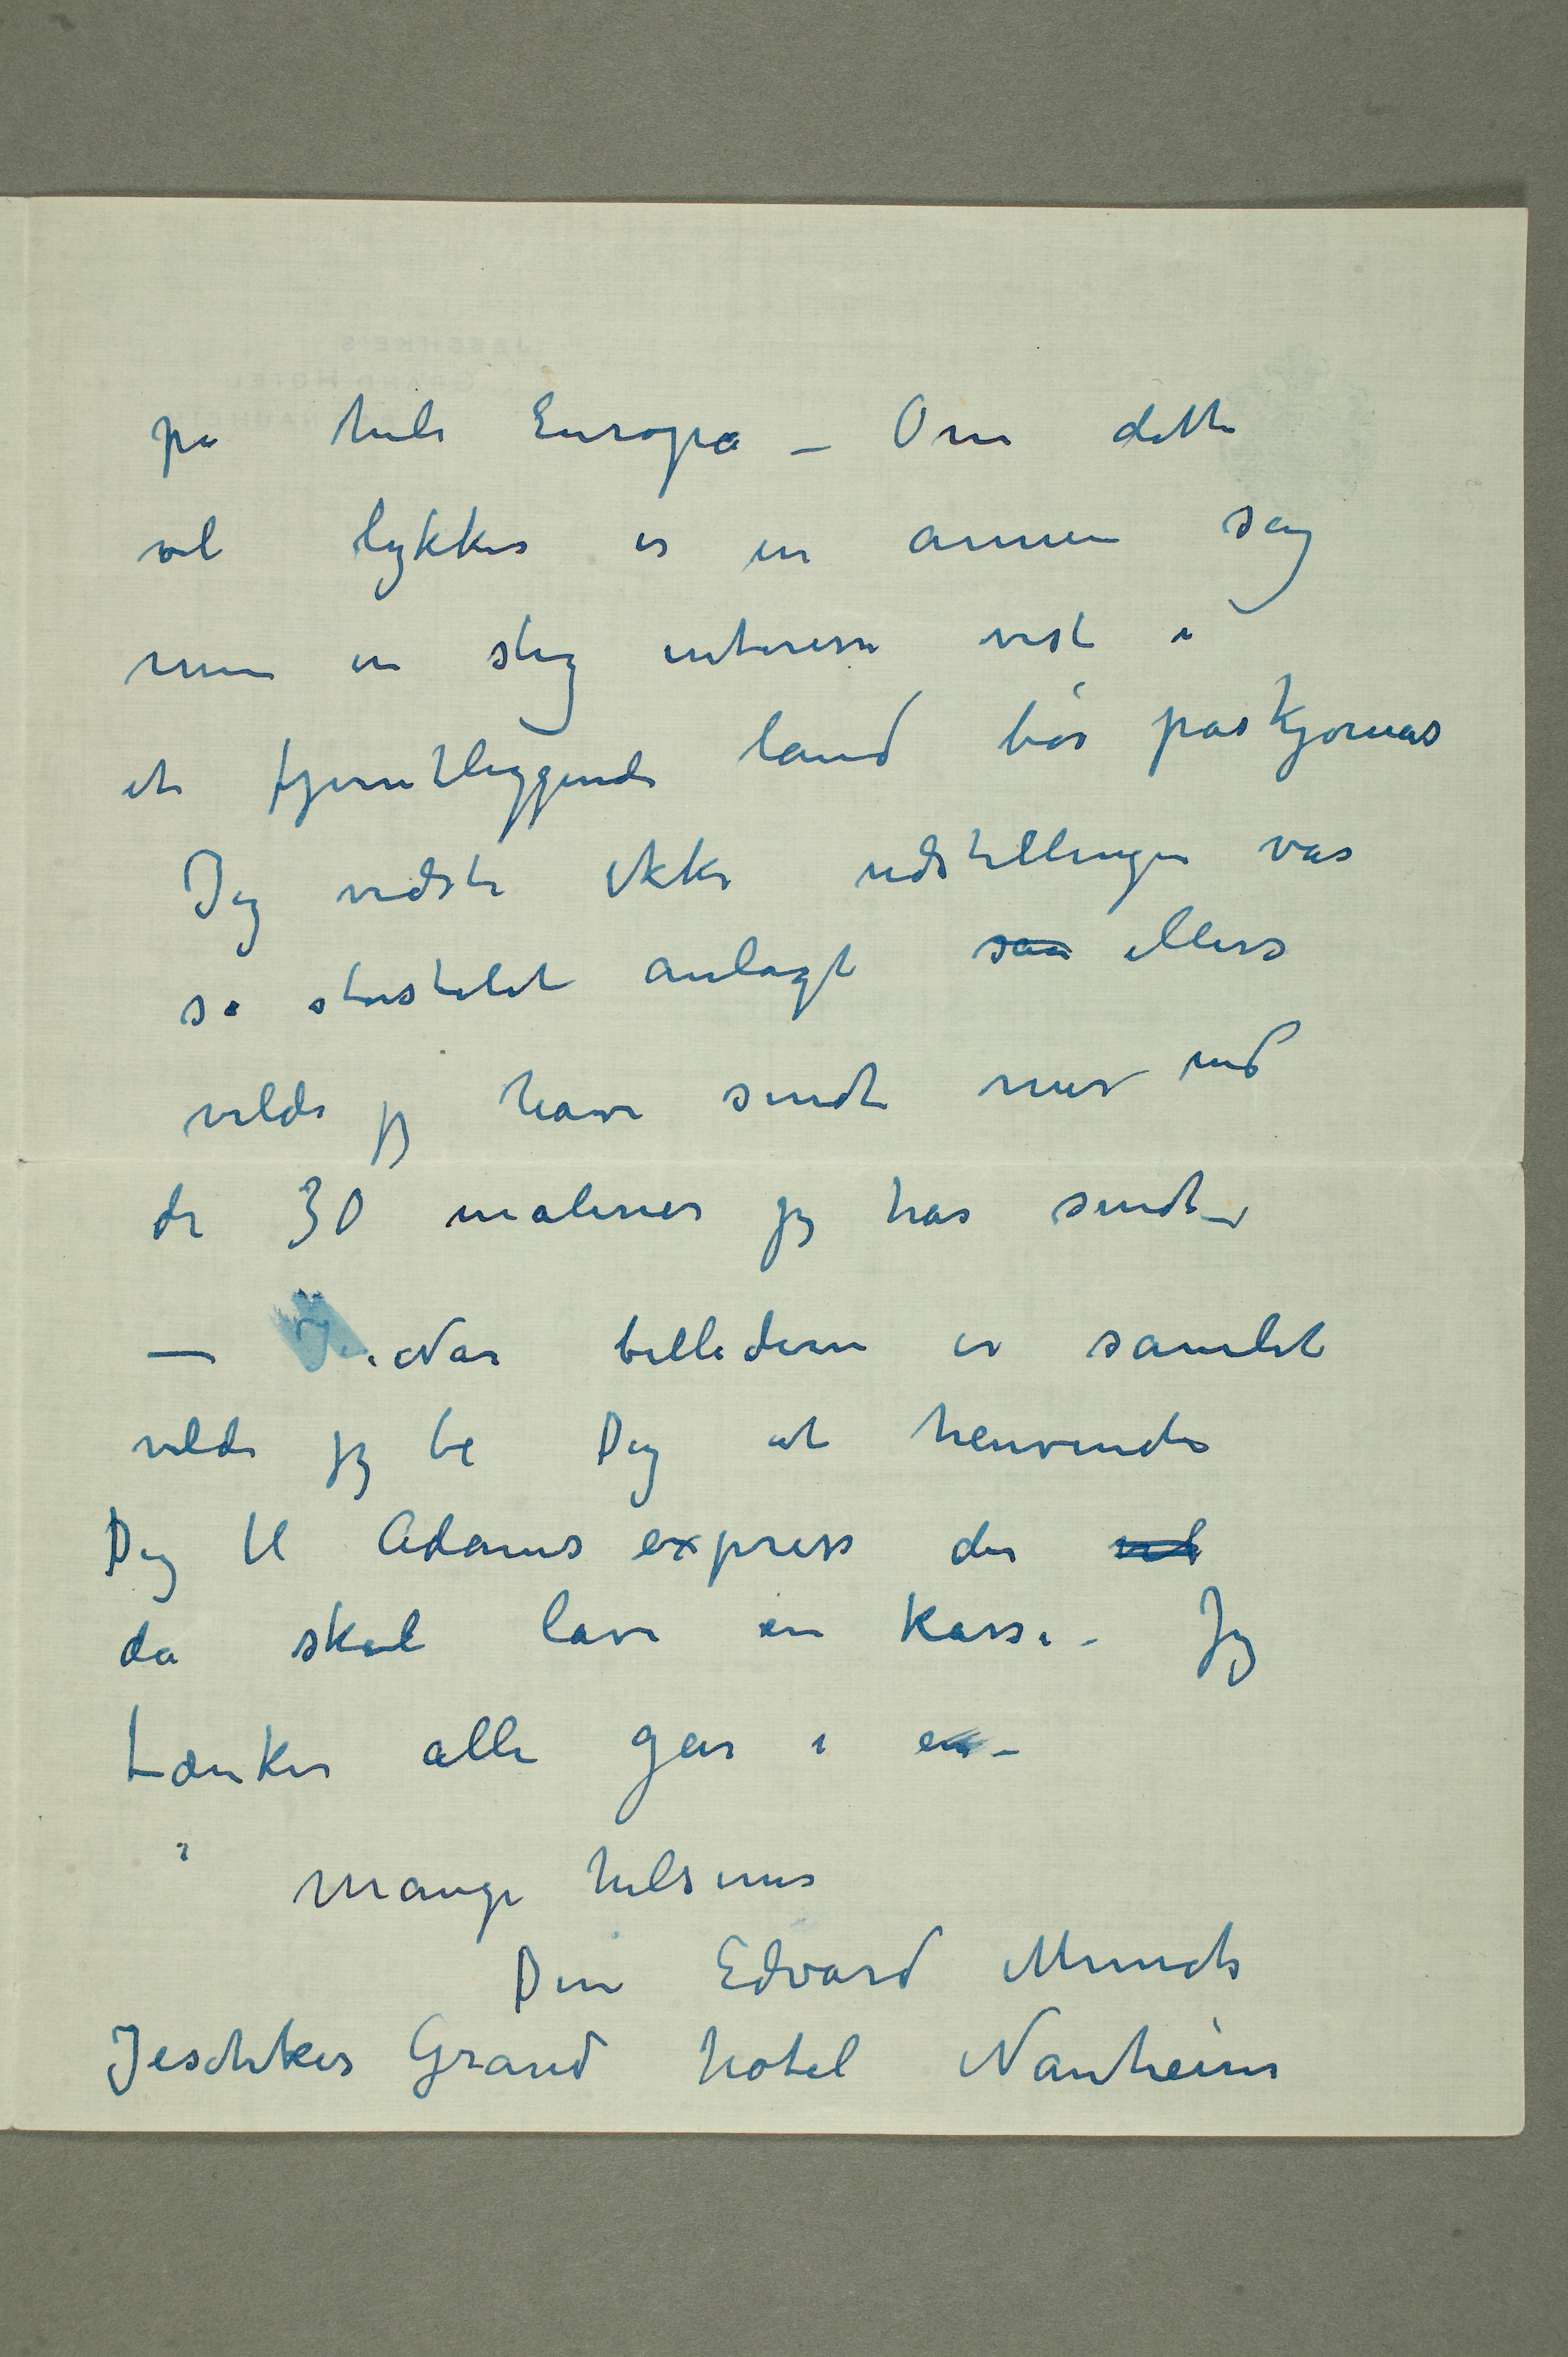 på hele Europa – Om dette
vil lykkes er en annen sag
men en slig interesse vist i
et fjerntliggende land bør påskjønnes
Jeg vidste ikke udstillingen var
så storstilet anlagt saa ellers
vilde jeg have sendt mer end
de 30 malerier jeg har sendt –
— Når billederne er samlet
vilde jeg be Dig at henvende
Dig til Adams express der vil
da skal lave en kasse – Jeg
tænker alle går i en –
Mange hilsener
Din Edvard Munch
Jeschkes Grand hotel Nauheim